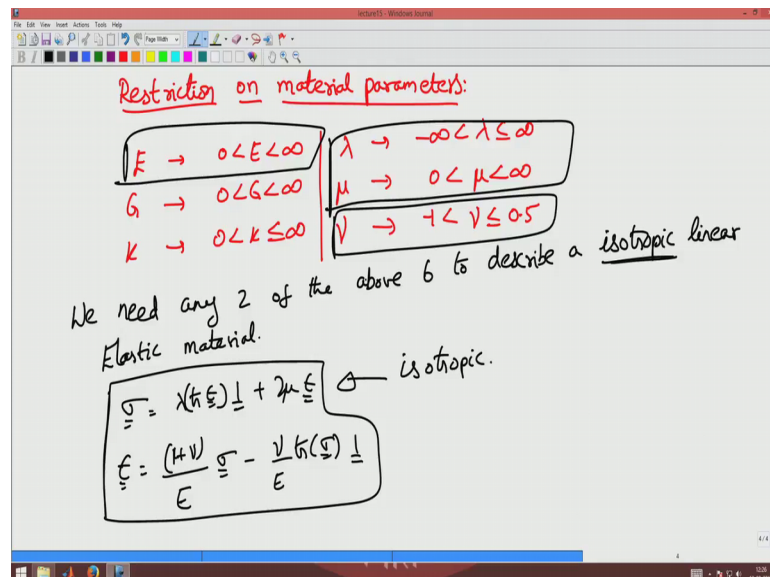 lecture13 - Windows Journal
File Edit View Insert Actions Tools Help
Page Width
B I
Restriction on material parameters:
E → 0 < E < ∞
G → 0 < G < ∞
K → 0 < K ≤ ∞
λ → -∞ < λ ≤ ∞
μ → 0 < μ < ∞
ν → -1 < ν ≤ 0.5
We need any 2 of the above 6 to describe a isotropic linear
Elastic material.
σ = λ(tr ε) 1 + 2μ ε ← isotropic.
ε = (1+ν)/E σ - ν/E tr(σ) 1
4/4
4
12:26